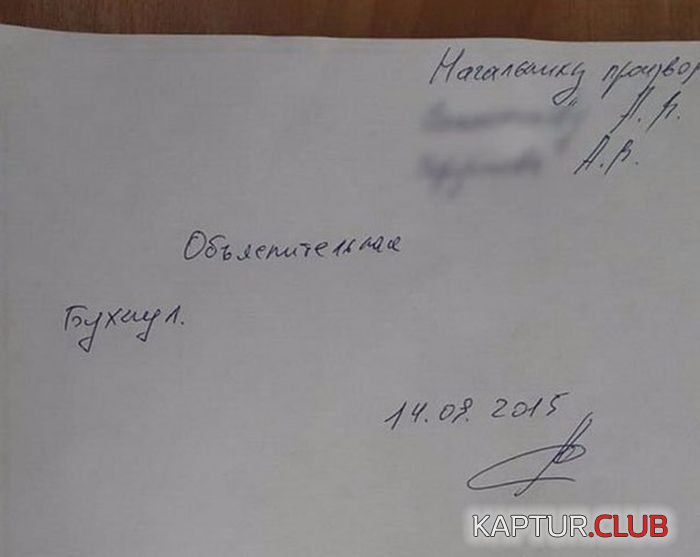 Начальнику произвор
А.В.
А.В.
Объяснительная
Бухнул.
14.09.2015
KAPTUR.CLUB